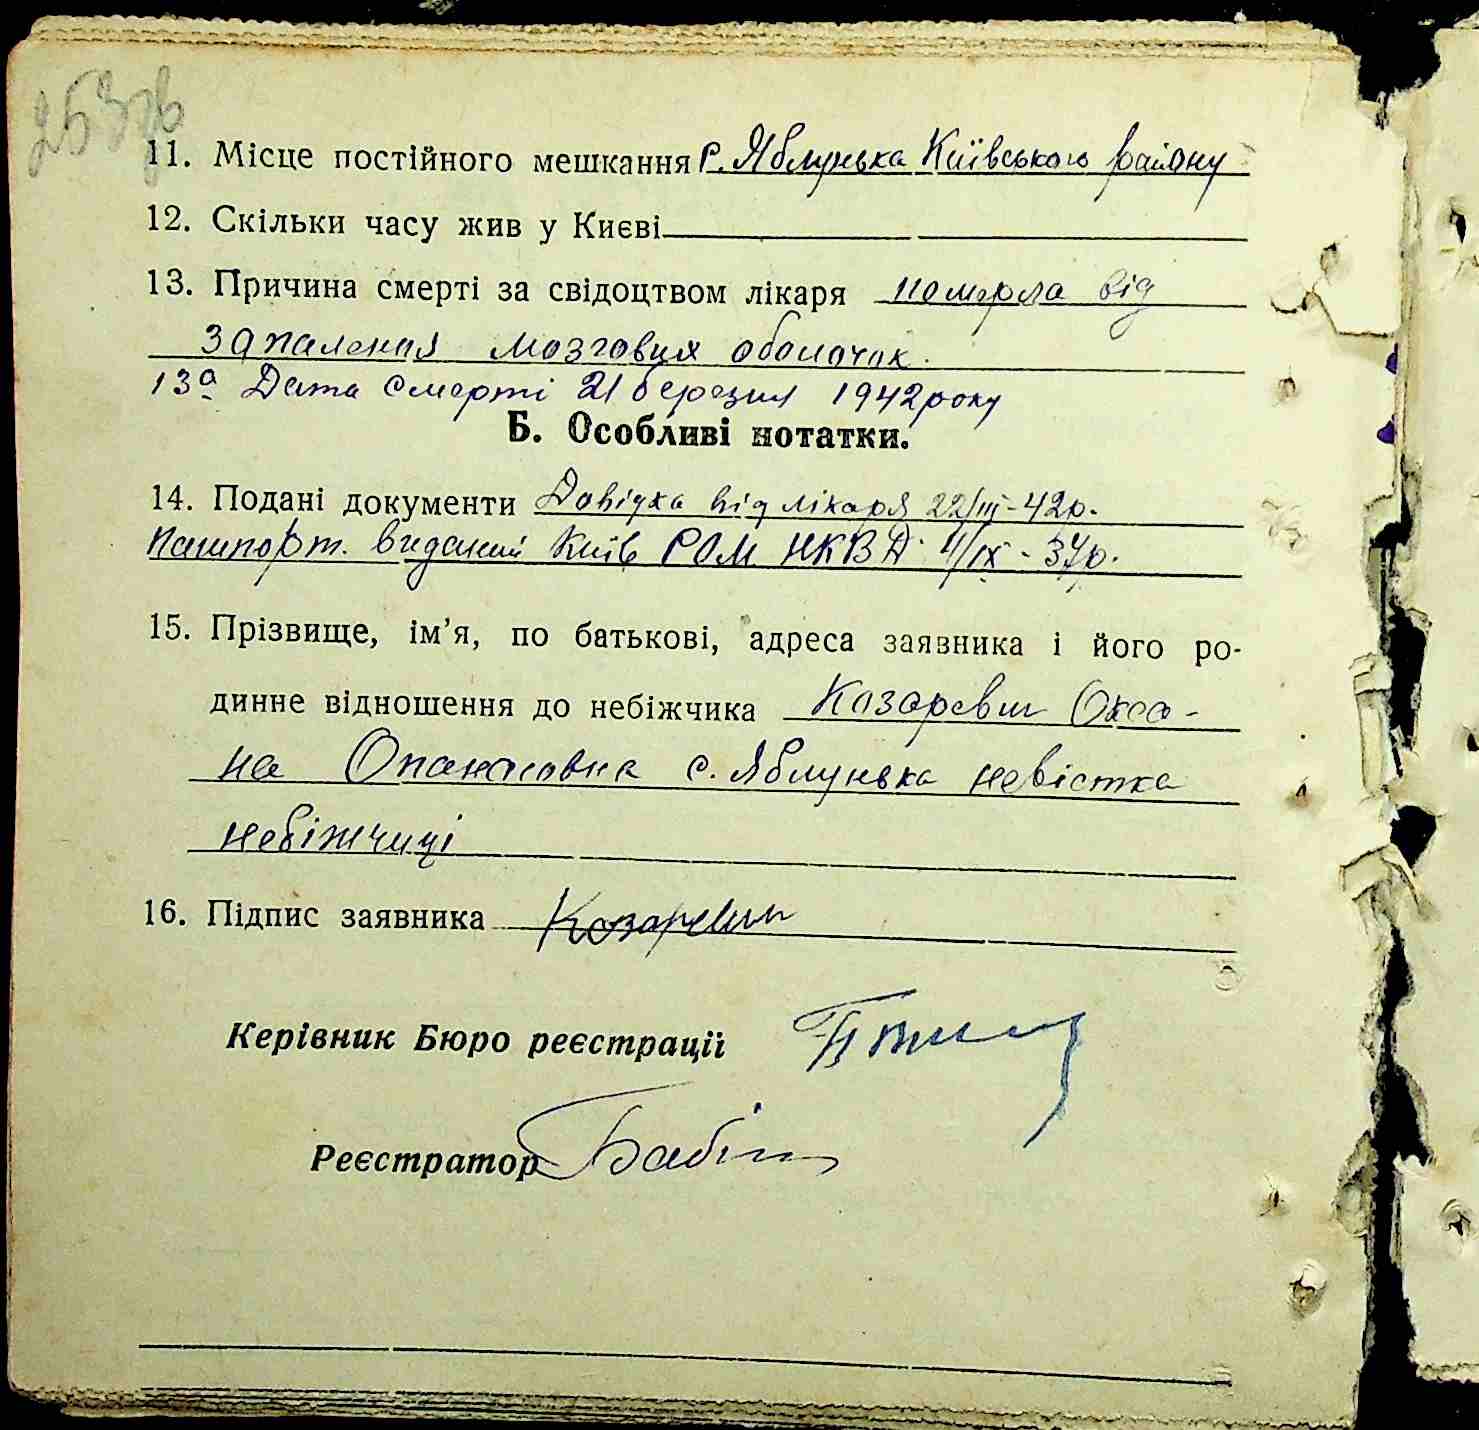 253зв
11. Місце постійного мешкання с. Яблунька Київського району
12. Скільки часу жив у Києві
13. Причина смерті за свідоцтвом лікаря померла від
запалення мозгових оболочок.
13а Дата смерті 21 березня 1942 року
Б. Особливі нотатки.
14. Подані документи Довідка від лікаря 22/III-42р.
пашпорт. виданий Київ РОМ НКВД 4/IX-37р.
15. Прізвище, ім’я, по батькові, адреса заявника і його ро-
динне відношення до небіжчика Козаревич Окса-
на Опанасовна с. Яблунька невістка
небіжчиці
16. Підпис заявника Козаревич
Керівник Бюро реєстрації
Реєстратор